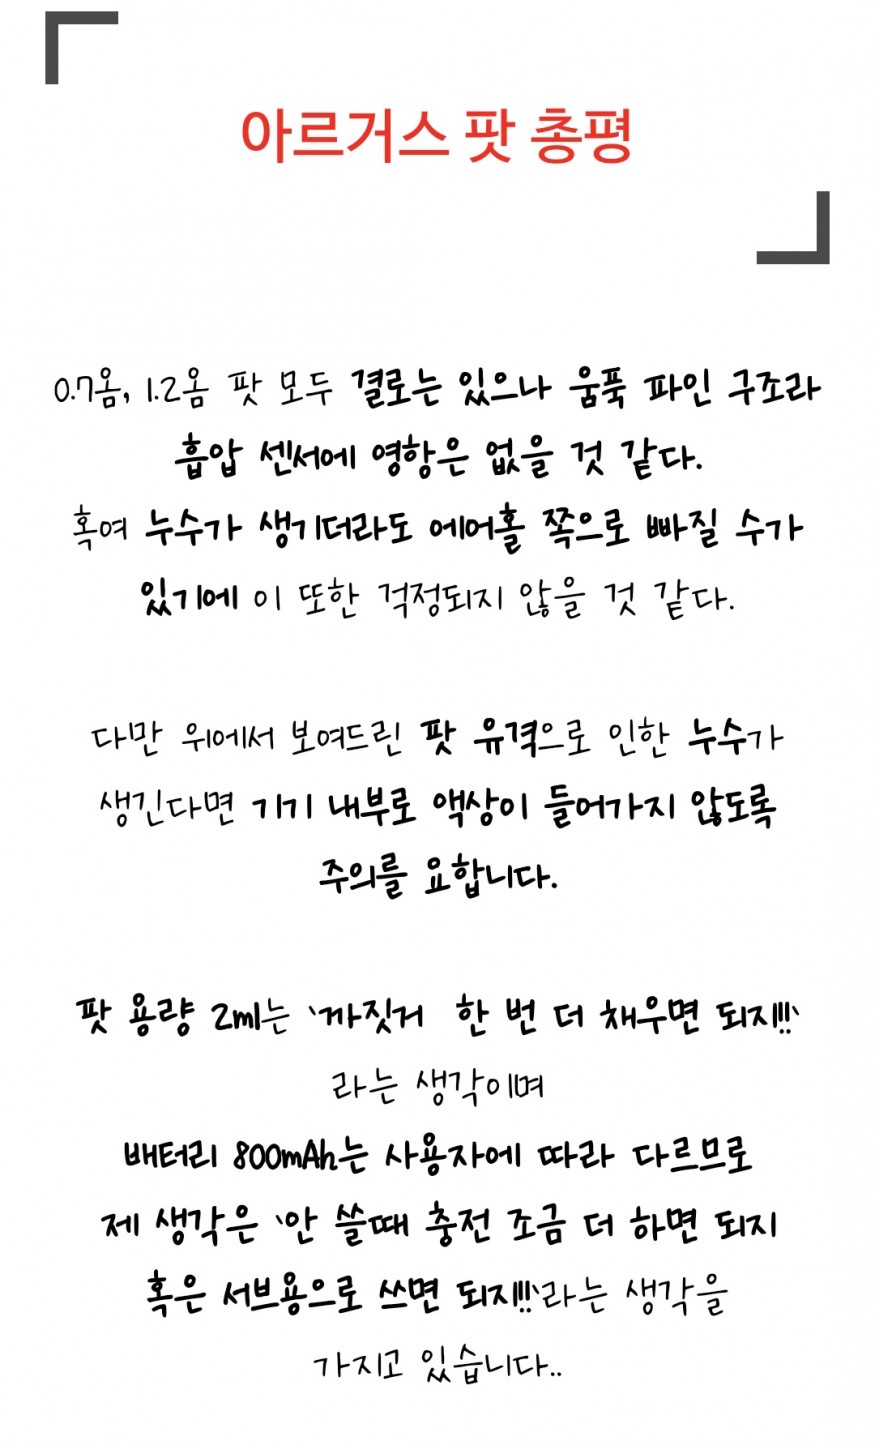 아르거스 팟 총평
0.7옴, 1.2옴 팟 모두 결로는 있으나 움푹 파인 구조라
흡압 센서에 영향은 없을 것 같다.
혹여 누수가 생기더라도 에어홀 쪽으로 빠질 수가
있기에 이 또한 걱정되지 않을 것 같다.
다만 위에서 보여드린 팟 유격으로 인한 누수가
생긴다면 기기 내부로 액상이 들어가지 않도록
주의를 요합니다.
팟 용량 2ml는 '까짓거 한 번 더 채우면 되지!!!'
라는 생각이며
배터리 800mAh는 사용자에 따라 다르므로
제 생각은 '안 쓸때 충전 조금 더 하면 되지
혹은 서브용으로 쓰면 되지!!!'라는 생각을
가지고 있습니다..